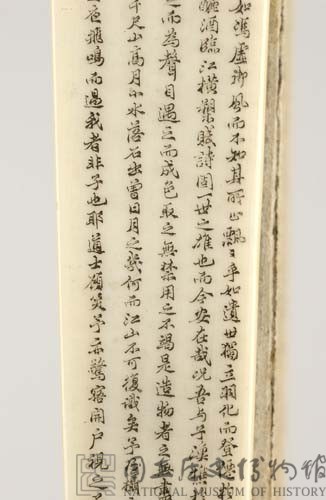 如馮虛御風而不知其所止飄〻乎如遺世獨立羽化而登
釃酒臨江橫槊賦詩固一世之雄也而今安在哉況吾與子漁
之而為聲目遇之而成色取之無禁用之不竭是造物者之無
千尺山高月小水落石出曾日月之幾何而江山不可復識矣予
飛鳴而過我者非子也耶道士顧笑予亦驚寤開戶視之
國立歷史博物館
NATIONAL MUSEUM OF HISTORY